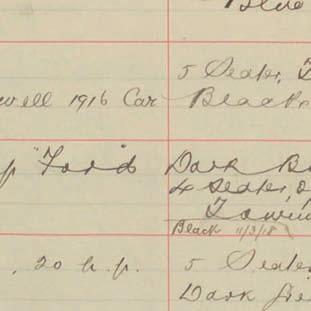 Blue
5 Seater, T
well 1916 Car Black
p "Ford Dark B
4 Seater,
Tourin
Black 11/3/18
, 20 h.p. 5 Seater
Dark Gre